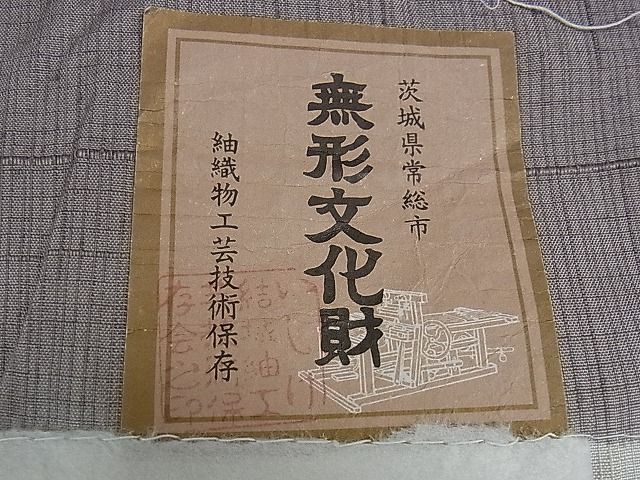 茨城県常総市
無形文化財
紬織物工芸技術保存